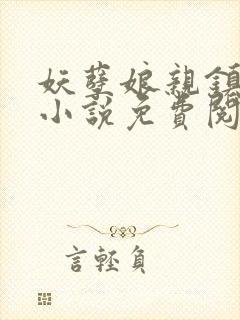 妖孽娘親鎮
小說免費閱
言輕負